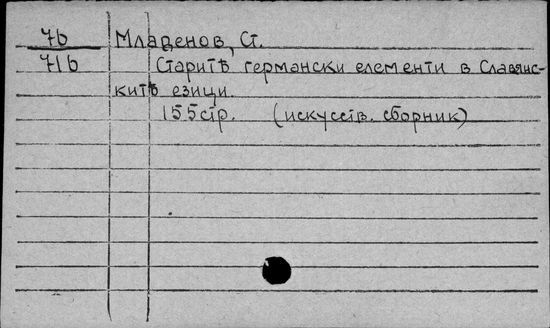 7b Младенов, Ст.
71b Старитѣ германски елементи в Славянс-
китѣ езици.
155стр. (искусств. сборник)